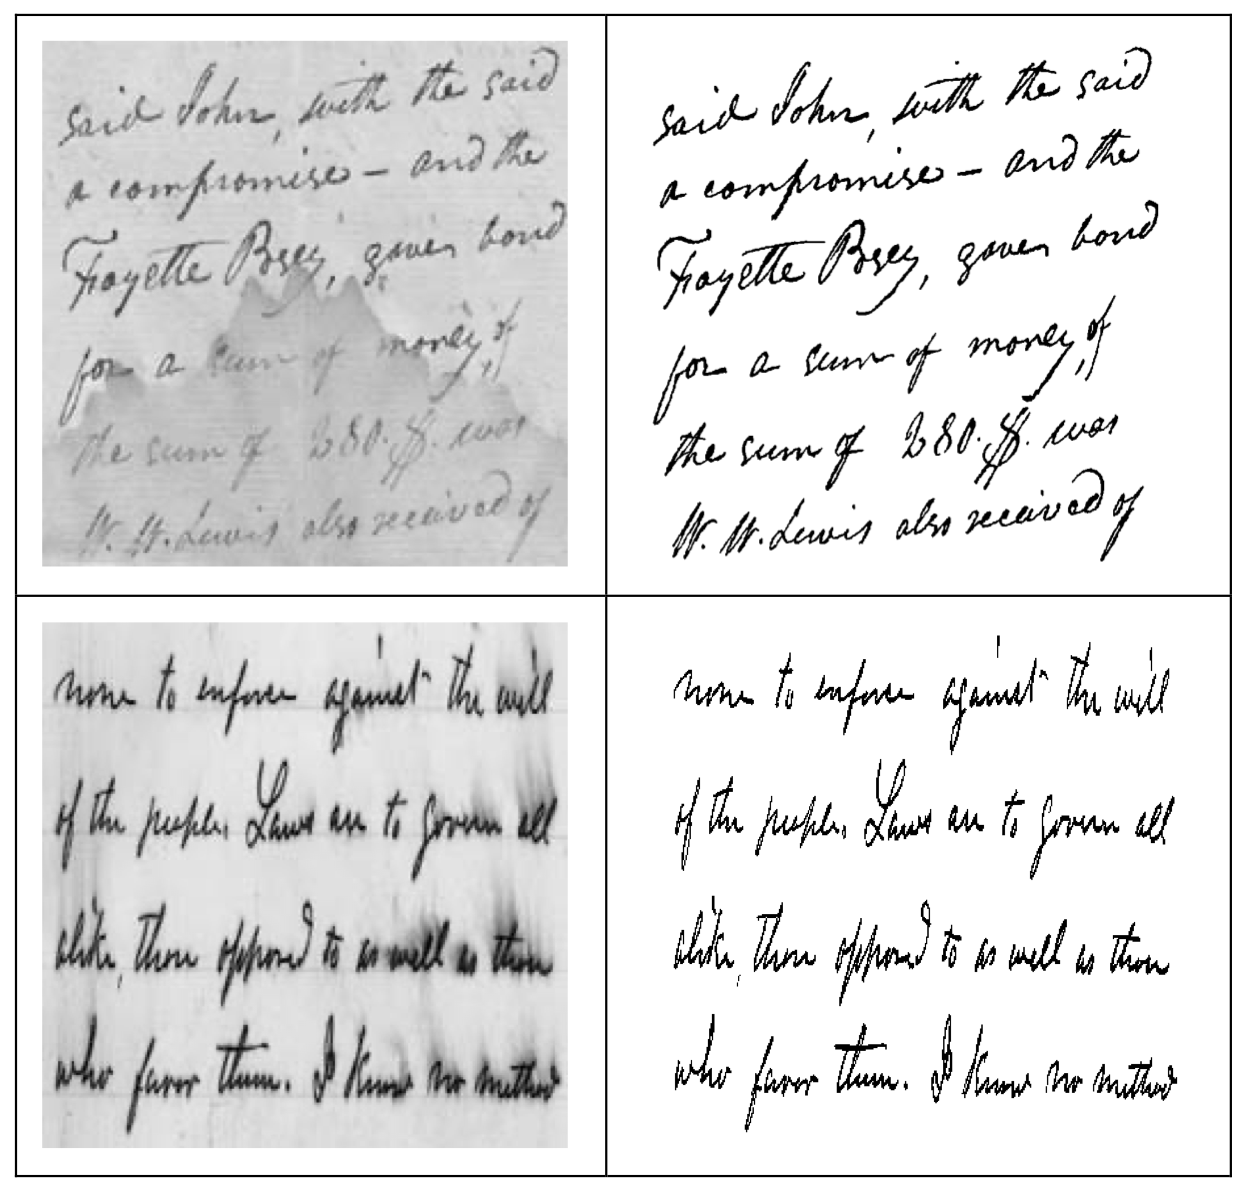 said John, with the said
a compromise – and the
Fayette BSey, gives bond
for a sum of money, of
the sum of 280.$. was
W. W. Lewis also received of
said John, with the said
a compromise – and the
Fayette BSey, gives bond
for a sum of money, of
the sum of 280.$. was
W. W. Lewis also received of
none to enforce against the will
of the people. Laws are to govern all
alike, those opposed to as well as those
who favor them. I know no method
none to enforce against the will
of the people. Laws are to govern all
alike, those opposed to as well as those
who favor them. I know no method